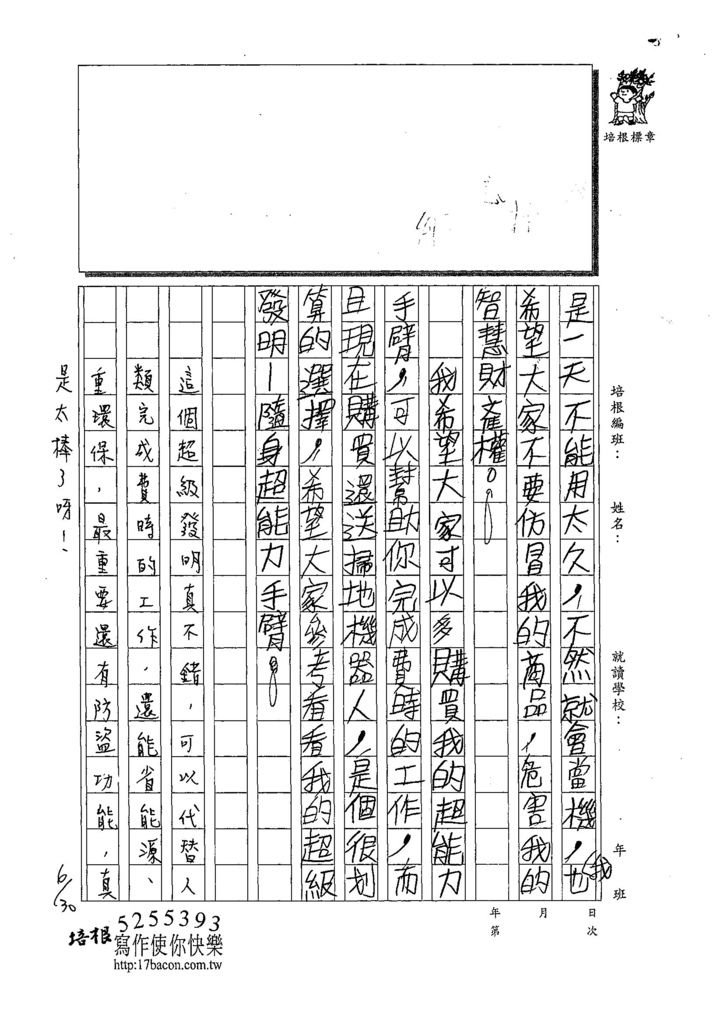 培根標章
培根編班：　姓名：　就讀學校：　年　班
年　月　日
第　次
是一天不能用太久，不然就會當機，也(我
希望大家不要仿冒我的商品，危害我的
智慧財產權。
我希望大家可以多購買我的超能力
手臂，可以幫助你完成費時的工作，而
且現在購買還送掃地機器人，是個很划
算的選擇，希望大家參考看看我的超級
發明—隨身超能力手臂。
這個超級發明真不錯，可以代替人
類完成費時的工作，還能省能源、
重環保，最重要還有防盜功能，真
是太棒了呀！
6/30
培根 5255393
寫作使你快樂
http:17bacon.com.tw